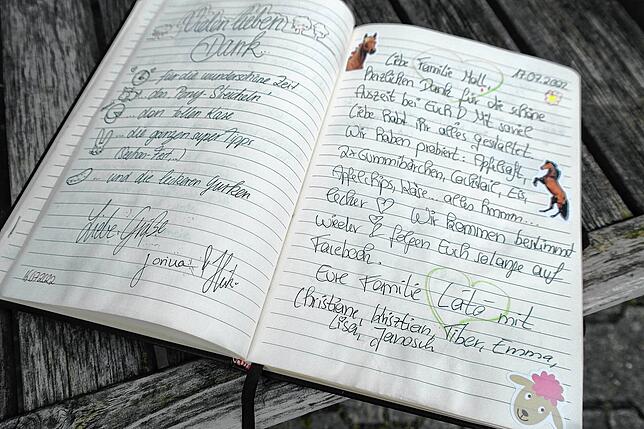 Vielen lieben
Dank
... für die wunderschöne Zeit
... das Pony-Streicheln
... den tollen Käse
... die ganzen super Tipps
... und die leckeren Gurken
Liebe Grüße
16.07.2022
Liebe Familie
11.07.2022
herzlichen Dank für die schöne
Auszeit bei Euch! Mit soviel
Liebe habt ihr alles gestaltet.
Wir haben probiert: Apfelsaft,
2x Gummibärchen, Cocktail, Eis,
Apfelchips, Käse... alles hmmm...
lecker ♡ Wir kommen bestimmt
wieder & folgen Euch solange auf
Facebook.
Eure Familie mit
Christiane, Tiber, Emma,
Lisa, Janosch